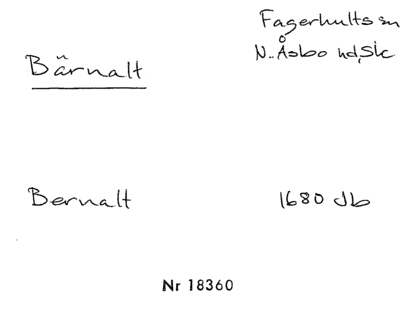 Fagerhults sn
Bärnalt
N. Åsbo hd, Sk
Bernalt 1680 Jb
Nr 18360